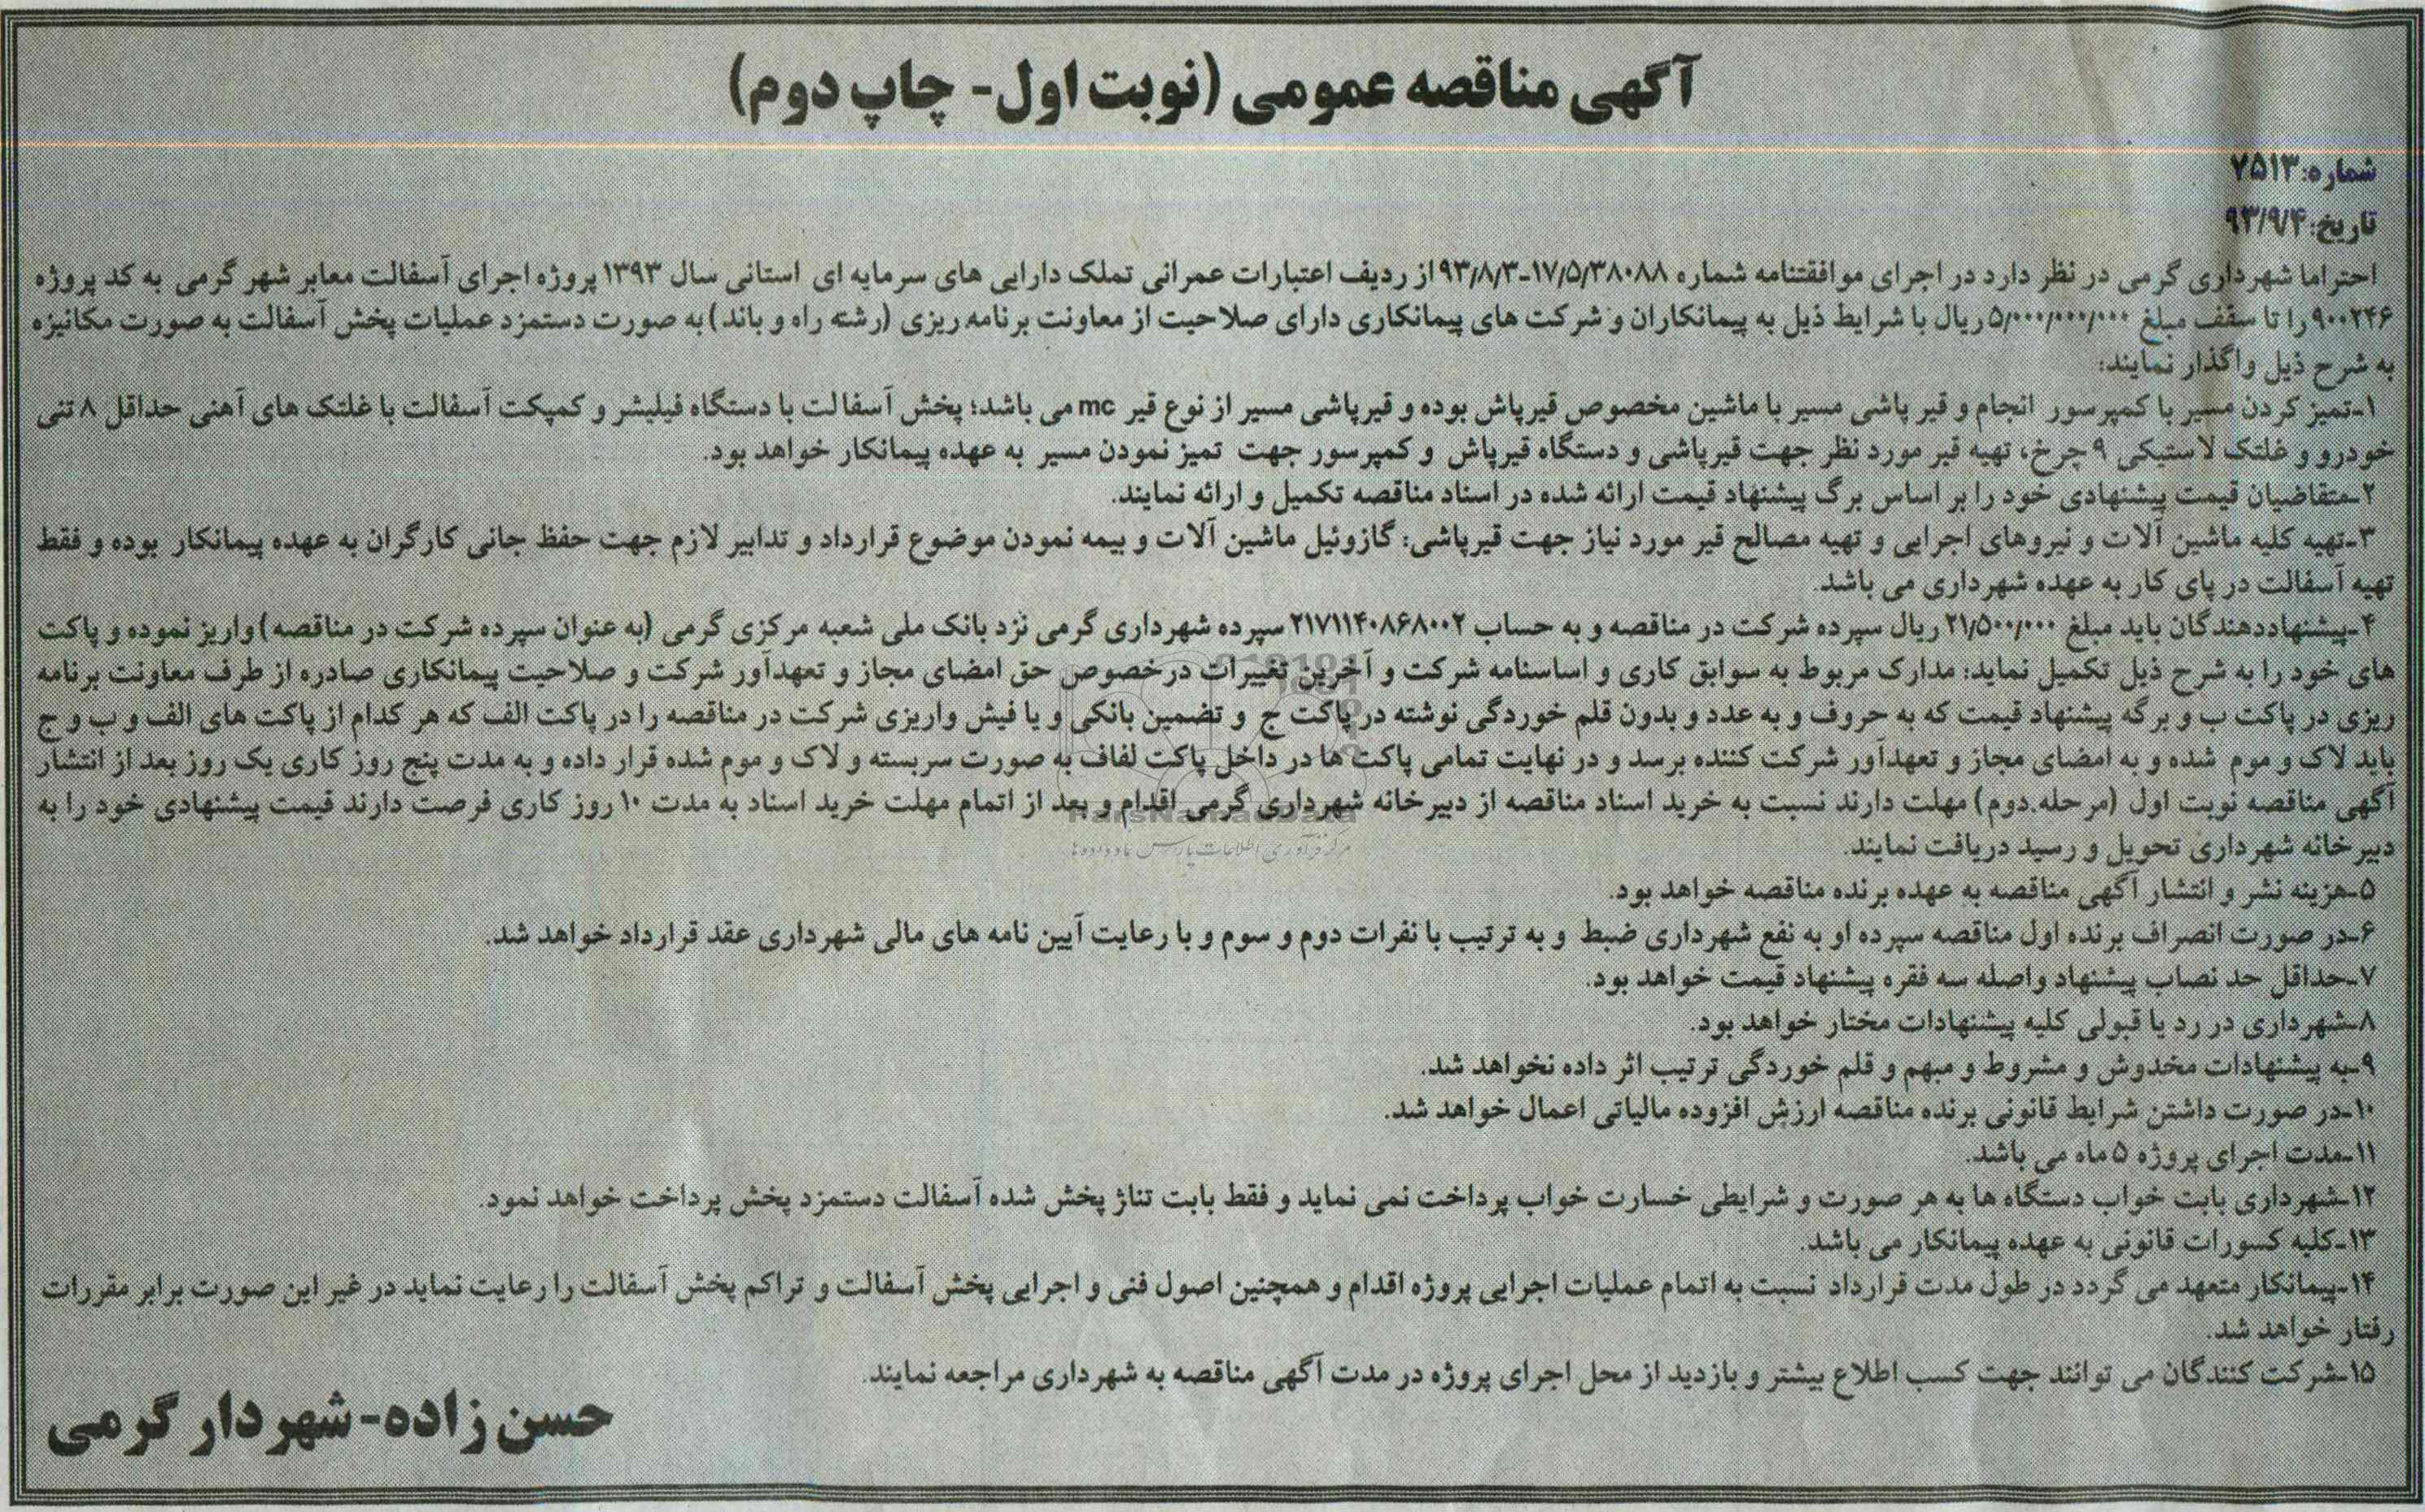 آگهی مناقصه عمومی (نوبت اول- چاپ دوم)
شماره: ۷۵۱۳
تاریخ: ۹۳/۹/۴
احتراما شهرداری گرمی در نظر دارد در اجرای موافقتنامه شماره ۱۷/۵/۳۸۰۸۸-۹۳/۸/۳ از ردیف اعتبارات عمرانی تملک دارایی های سرمایه ای استانی سال ۱۳۹۳ پروژه اجرای آسفالت معابر شهر گرمی به کد پروژه
۹۰۰۲۴۶ را تا سقف مبلغ ۵/۰۰۰/۰۰۰/۰۰۰ ریال با شرایط ذیل به پیمانکاران و شرکت های پیمانکاری دارای صلاحیت از معاونت برنامه ریزی (رشته راه و باند) به صورت دستمزد عملیات پخش آسفالت به صورت مکانیزه
به شرح ذیل واگذار نمایند:
۱-تمیز کردن مسیر با کمپرسور انجام و قیر پاشی مسیر با ماشین مخصوص قیرپاش بوده و قیرپاشی مسیر از نوع قیر mc می باشد؛ پخش آسفالت با دستگاه فیلیشر و کمپکت آسفالت با غلتک های آهنی حداقل ۸ تنی
خودرو و غلتک لاستیکی ۹ چرخ، تهیه قیر مورد نظر جهت قیرپاشی و دستگاه قیرپاش و کمپرسور جهت تمیز نمودن مسیر به عهده پیمانکار خواهد بود.
۲-متقاضیان قیمت پیشنهادی خود را بر اساس برگ پیشنهاد قیمت ارائه شده در اسناد مناقصه تکمیل و ارائه نمایند.
۳-تهیه کلیه ماشین آلات و نیروهای اجرایی و تهیه مصالح قیر مورد نیاز جهت قیرپاشی؛ گازوئیل ماشین آلات و بیمه نمودن موضوع قرارداد و تدابیر لازم جهت حفظ جانی کارگران به عهده پیمانکار بوده و فقط
تهیه آسفالت در پای کار به عهده شهرداری می باشد.
۴-پیشنهاددهندگان باید مبلغ ۲۱/۵۰۰/۰۰۰ ریال سپرده شرکت در مناقصه و به حساب ۲۱۷۱۱۴۰۸۶۸۰۰۲ سپرده شهرداری گرمی نزد بانک ملی شعبه مرکزی گرمی (به عنوان سپرده شرکت در مناقصه) واریز نموده و پاکت
های خود را به شرح ذیل تکمیل نماید؛ مدارک مربوط به سوابق کاری و اساسنامه شرکت و آخرین تغییرات درخصوص حق امضای مجاز و تعهدآور شرکت و صلاحیت پیمانکاری صادره از طرف معاونت برنامه
ریزی در پاکت ب و برگه پیشنهاد قیمت که به حروف و به عدد و بدون قلم خوردگی نوشته در پاکت ج و تضمین بانکی و یا فیش واریزی شرکت در مناقصه را در پاکت الف که هر کدام از پاکت های الف و ب و ج
باید لاک و موم شده و به امضای مجاز و تعهدآور شرکت کننده برسد و در نهایت تمامی پاکت ها در داخل پاکت لفاف به صورت سربسته و لاک و موم شده قرار داده و به مدت پنج روز کاری یک روز بعد از انتشار
آگهی مناقصه نوبت اول (مرحله.دوم) مهلت دارند نسبت به خرید اسناد مناقصه از دبیرخانه شهرداری گرمی اقدام و بعد از اتمام مهلت خرید اسناد به مدت ۱۰ روز کاری فرصت دارند قیمت پیشنهادی خود را به
دبیرخانه شهرداری تحویل و رسید دریافت نمایند.
ParsNamadData
مرکز فرآوری اطلاعات پارس نماد داده ها
۵-هزینه نشر و انتشار آگهی مناقصه به عهده برنده مناقصه خواهد بود.
۶-در صورت انصراف برنده اول مناقصه سپرده او به نفع شهرداری ضبط و به ترتیب با نفرات دوم و سوم و با رعایت آیین نامه های مالی شهرداری عقد قرارداد خواهد شد.
۷-حداقل حد نصاب پیشنهاد واصله سه فقره پیشنهاد قیمت خواهد بود.
۸-شهرداری در رد یا قبولی کلیه پیشنهادات مختار خواهد بود.
۹-به پیشنهادات مخدوش و مشروط و مبهم و قلم خوردگی ترتیب اثر داده نخواهد شد.
۱۰-در صورت داشتن شرایط قانونی برنده مناقصه ارزش افزوده مالیاتی اعمال خواهد شد.
۱۱-مدت اجرای پروژه ۵ ماه می باشد.
۱۲-شهرداری بابت خواب دستگاه ها به هر صورت و شرایطی خسارت خواب پرداخت نمی نماید و فقط بابت تناژ پخش شده آسفالت دستمزد پخش پرداخت خواهد نمود.
۱۳-کلیه کسورات قانونی به عهده پیمانکار می باشد.
۱۴-پیمانکار متعهد می گردد در طول مدت قرارداد نسبت به اتمام عملیات اجرایی پروژه اقدام و همچنین اصول فنی و اجرایی پخش آسفالت و تراکم پخش آسفالت را رعایت نماید در غیر این صورت برابر مقررات
رفتار خواهد شد.
۱۵-شرکت کنندگان می توانند جهت کسب اطلاع بیشتر و بازدید از محل اجرای پروژه در مدت آگهی مناقصه به شهرداری مراجعه نمایند.
حسن زاده-شهردار گرمی